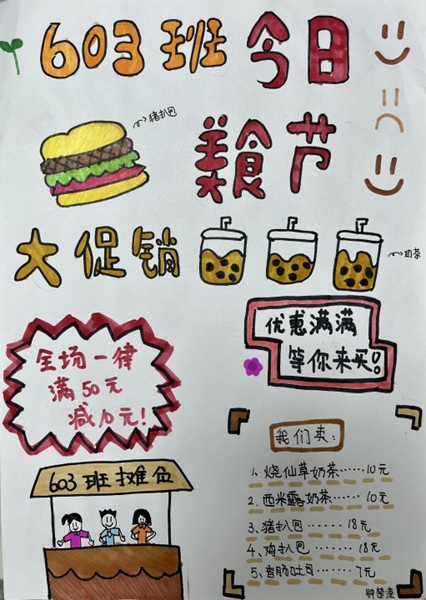 603班 今日
猪扒包
美食节
大促销
奶茶
优惠满满
等你来买!
全场一律
满50元
减10元!
603班摊位
我们卖:
1. 烧仙草奶茶……10元
2. 西米露奶茶……10元
3. 猪扒包……18元
4. 鸡扒包……18元
5. 香肠吐司……7元